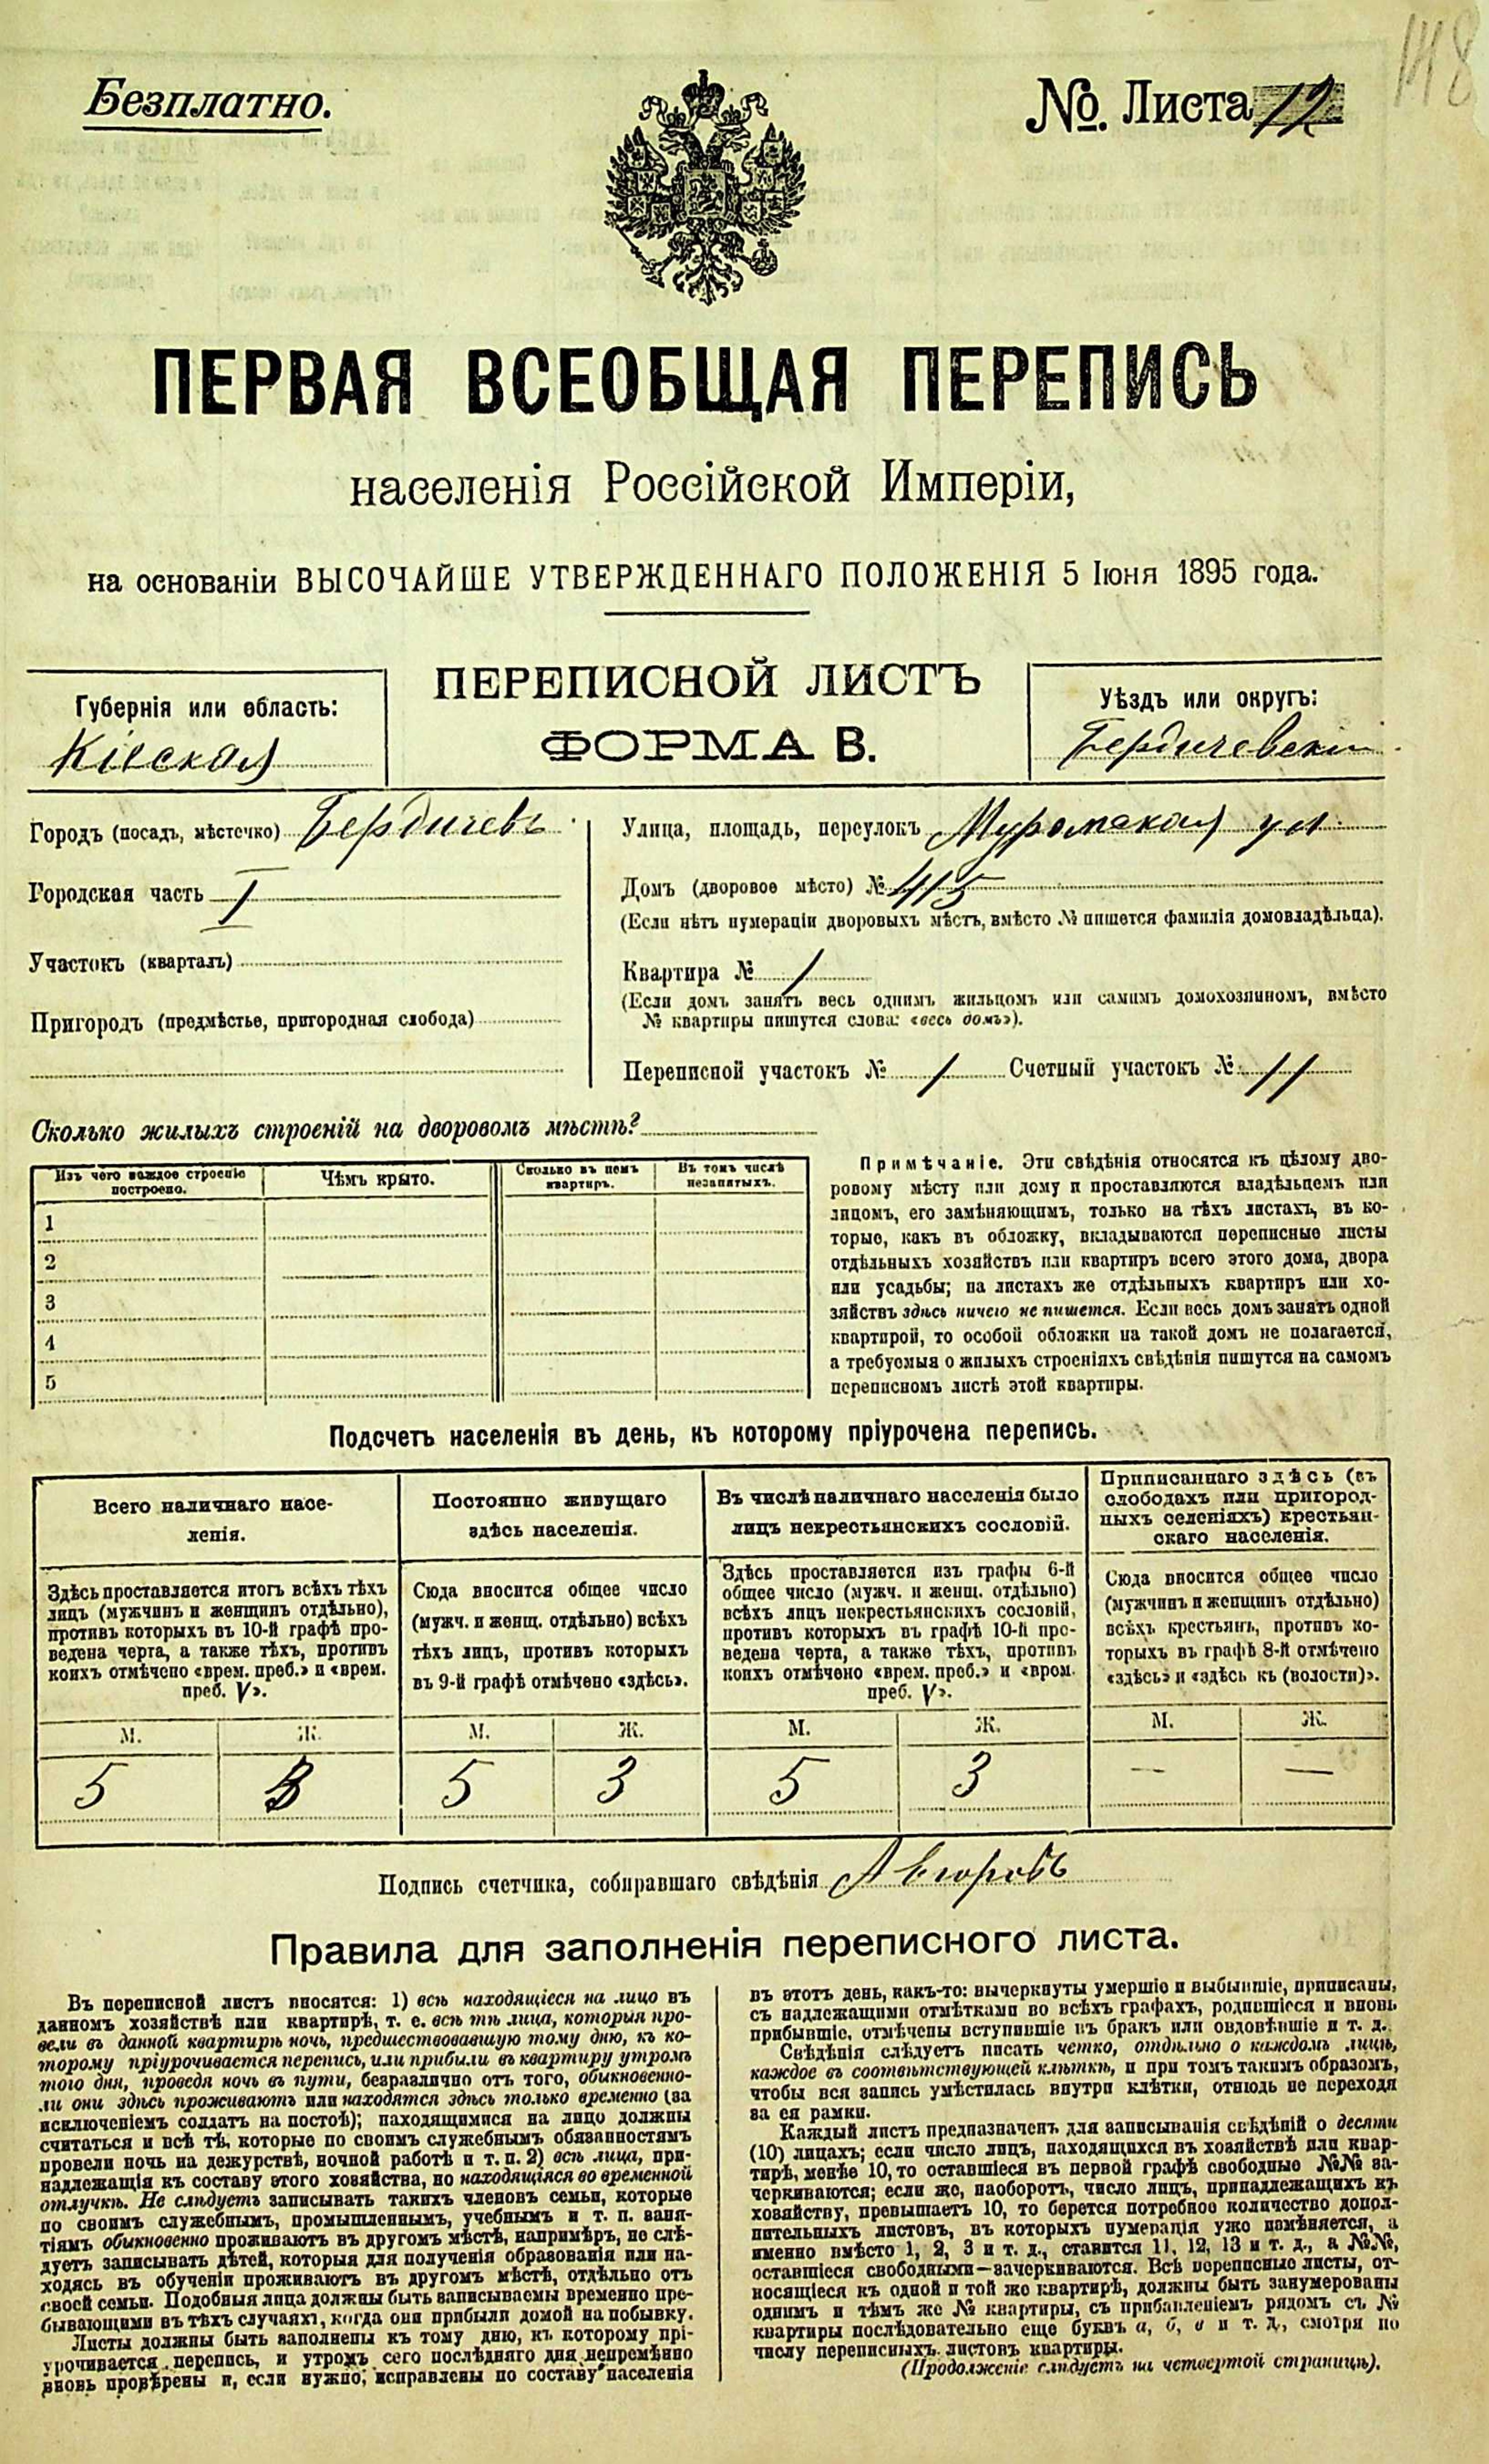 148
Безплатно.
№. Листа 12
ПЕРВАЯ ВСЕОБЩАЯ ПЕРЕПИСЬ
населенія Россійской Имперіи,
на основаніи ВЫСОЧАЙШЕ УТВЕРЖДЕННАГО ПОЛОЖЕНІЯ 5 Іюня 1895 года.
ПЕРЕПИСНОЙ ЛИСТЪ
ФОРМА В.
Губернія или область:
Кіевская
Уѣздъ или округъ:
Бердичевскій
Городъ (посадъ, мѣстечко) Бердичевъ
Городская часть I
Участокъ (кварталъ)
Пригородъ (предмѣстье, пригородная слобода)
Улица, площадь, переулокъ Муромская ул.
Домъ (дворовое мѣсто) № 415
(Если нѣтъ нумераціи дворовыхъ мѣстъ, вмѣсто № пишется фамилія домовладѣльца).
Квартира № 1
(Если домъ занятъ весь однимъ жильцомъ или самимъ домохозяиномъ, вмѣсто
№ квартиры пишутся слова: «весь домъ»).
Переписной участокъ № 1 Счетный участокъ № 11
Сколько жилыхъ строеній на дворовомъ мѣстѣ?
Изъ чего каждое строеніе
построено.
Чѣмъ крыто.
Сколько въ немъ
квартиръ.
Въ томъ числѣ
незанятыхъ.
1
2
3
4
5
Примѣчаніе. Эти свѣдѣнія относятся къ цѣлому дво-
ровому мѣсту или дому и проставляются владѣльцемъ или
лицомъ, его замѣняющимъ, только на тѣхъ листахъ, въ ко-
торые, какъ въ обложку, вкладываются переписные листы
отдѣльныхъ хозяйствъ или квартиръ всего этого дома, двора
или усадьбы; на листахъ же отдѣльныхъ квартиръ или хо-
зяйствъ здѣсь ничего не пишется. Если весь домъ занятъ одной
квартирой, то особой обложки на такой домъ не полагается,
а требуемыя о жилыхъ строеніяхъ свѣдѣнія пишутся на самомъ
переписномъ листѣ этой квартиры.
Подсчетъ населенія въ день, къ которому пріурочена перепись.
Всего наличнаго насе-
ленія.
Здѣсь проставляется итогъ всѣхъ тѣхъ
лицъ (мужчинъ и женщинъ отдѣльно),
противъ которыхъ въ 10-й графѣ про-
ведена черта, а также тѣхъ, противъ
коихъ отмѣчено «врем. преб.» и «врем.
преб. V».
М. Ж.
5 3
Постоянно живущаго
здѣсь населенія.
Сюда вносится общее число
(мужч. и женщ. отдѣльно) всѣхъ
тѣхъ лицъ, противъ которыхъ
въ 9-й графѣ отмѣчено «здѣсь».
М. Ж.
5 3
Въ числѣ наличнаго населенія было
лицъ некрестьянскихъ сословій.
Здѣсь проставляется изъ графы 6-й
общее число (мужч. и женщ. отдѣльно)
всѣхъ лицъ некрестьянскихъ сословій,
противъ которыхъ въ графѣ 10-й про-
ведена черта, а также тѣхъ, противъ
коихъ отмѣчено «врем. преб.» и «врем.
преб. V».
М. Ж.
5 3
Приписаннаго здѣсь (въ
слободахъ или пригород-
ныхъ селеніяхъ) крестьян-
скаго населенія.
Сюда вносится общее число
(мужчинъ и женщинъ отдѣльно)
всѣхъ крестьянъ, противъ ко-
торыхъ въ графѣ 8-й отмѣчено
«здѣсь» и «здѣсь къ (волости)».
М. Ж.
— —
Подпись счетчика, собиравшаго свѣдѣнія
Правила для заполненія переписного листа.
Въ переписной листъ вносятся: 1) всѣ находящіеся на лицо въ
данномъ хозяйствѣ или квартирѣ, т. е. всѣ тѣ лица, которыя про-
вели въ данной квартирѣ ночь, предшествовавшую тому дню, къ ко-
торому пріурочивается перепись, или прибыли въ квартиру утромъ
того дня, проведя ночь въ пути, безразлично отъ того, обыкновенно-
ли они здѣсь проживаютъ или находятся здѣсь только временно (за
исключеніемъ солдатъ на постоѣ); находящимися на лицо должны
считаться и всѣ тѣ, которые по своимъ служебнымъ обязанностямъ
провели ночь на дежурствѣ, ночной работѣ и т. п. 2) всѣ лица, при-
надлежащія къ составу этого хозяйства, но находящіяся во временной
отлучкѣ. Не слѣдуетъ записывать такихъ членовъ семьи, которые
по своимъ служебнымъ, промышленнымъ, учебнымъ и т. п. заня-
тіямъ обыкновенно проживаютъ въ другомъ мѣстѣ, напримѣръ, не слѣ-
дуетъ записывать дѣтей, которыя для полученія образованія или на-
ходясь въ обученіи проживаютъ въ другомъ мѣстѣ, отдѣльно отъ
своей семьи. Подобныя лица должны быть записываемы временно пре-
бывающими въ тѣхъ случаяхъ, когда они прибыли домой на побывку.
Листы должны быть заполнены къ тому дню, къ которому прі-
урочивается перепись, и утромъ сего послѣдняго дня непремѣнно
вновь провѣрены и, если нужно, исправлены по составу населенія
въ этотъ день, какъ-то: вычеркнуты умершіе и выбывшіе, приписаны,
съ надлежащими отмѣтками во всѣхъ графахъ, родившіеся и вновь
прибывшіе, отмѣчены вступившіе въ бракъ или овдовѣвшіе и т. д.
Свѣдѣнія слѣдуетъ писать четко, отдѣльно о каждомъ лицѣ,
каждое въ соотвѣтствующей клѣткѣ, и при томъ такимъ образомъ,
чтобы вся запись умѣстилась внутри клѣтки, отнюдь не переходя
за ея рамки.
Каждый листъ предназначенъ для записыванія свѣдѣній о десяти
(10) лицахъ; если число лицъ, находящихся въ хозяйствѣ или квар-
тирѣ, менѣе 10, то оставшіеся въ первой графѣ свободные №№ за-
черкиваются; если же, наоборотъ, число лицъ, принадлежащихъ къ
хозяйству, превышаетъ 10, то берется потребное количество допол-
нительныхъ листовъ, въ которыхъ нумерація уже измѣняется, а
именно вмѣсто 1, 2, 3 и т. д., ставится 11, 12, 13 и т. д., а №№,
оставшіеся свободными—зачеркиваются. Всѣ переписные листы, от-
носящіеся къ одной и той же квартирѣ, должны быть занумерованы
однимъ и тѣмъ же № квартиры, съ прибавленіемъ рядомъ съ №
квартиры послѣдовательно еще буквъ а, б, в и т. д., смотря по
числу переписныхъ листовъ квартиры.
(Продолженіе слѣдуетъ на четвертой страницѣ).